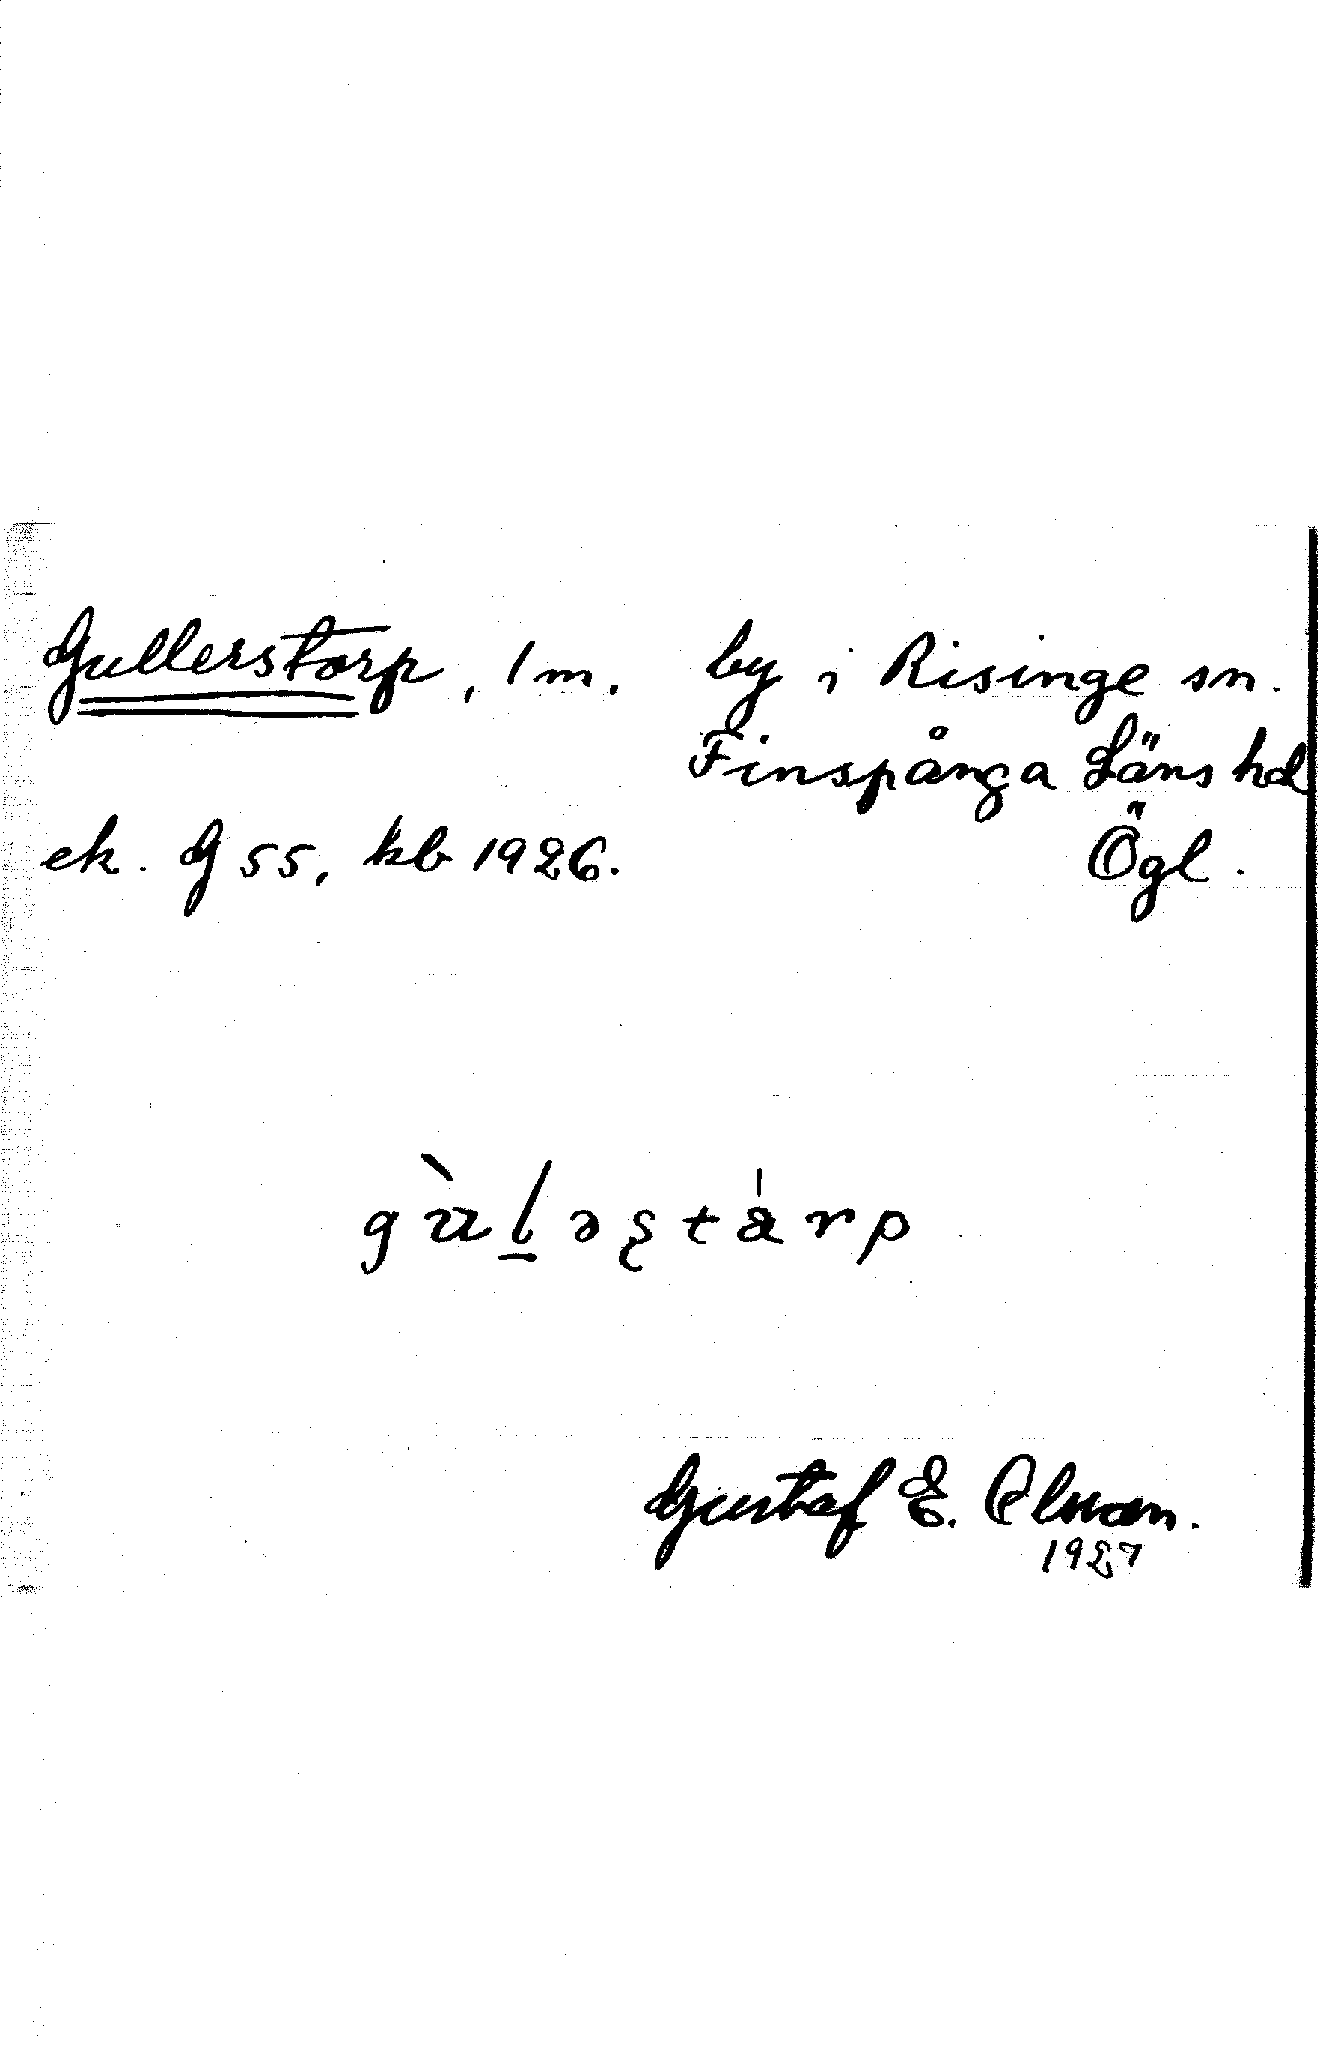 Gullerstorp, 1 m. by i Risinge sn.
Finspånga Läns hd
ek. G 55, kb 1926. Ögl.
gùl̲əʂtårp
Gustaf E.
1927